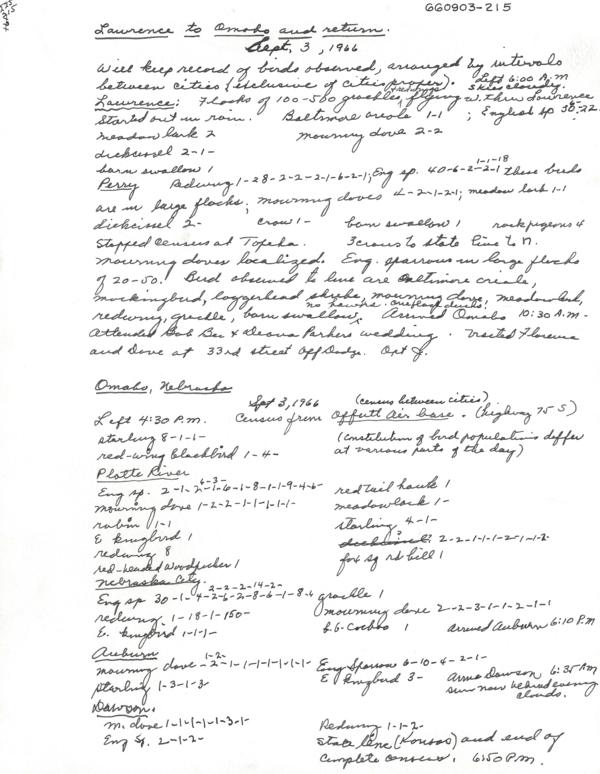 GG0903-215
Lawrence to Omaha and return.
Sept, 3, 1966
Will keep record of birds observed, arranged by intervals
between cities (exclusive of cities proper). Left 6:00 A.M
Skies cloudy.
Lawrence: Flocks of 100-500 grackles, flying w. thru Lawrence
Started out in rain. Baltimore oriole 1-1 ; English sp 30-22
meadow lark 2 mourning dove 2-2
dickcissel 2-1-
barn swallow 1
Perry Redwing 1-28-2-2-2-1-6-2-1; Eng sp. 40-6-2-2-1 1-1-18 these birds
are in large flocks; mourning doves 4-2-1-2-1; meadow lark 1-1
dickcissel 2- crow 1- barn swallow 1 rock pigeons 4
Stopped census at Topeka. 3 crows to state line to N.
mourning doves localized. Eng. sparrows in large flocks
of 20-50. Bird observed to line are Baltimore oriole,
mockingbird, loggerhead shrike, mourning dove, meadowlark,
redwing, grackle, barn swallow. Arrived Omaha 10:30 A.M-
Attended Bob Bee & Deana Parkers wedding. Visited Florence
and Dave at 33rd street off Dodge. Apt J.
Omaha, Nebraska
Sept 3, 1966 (census between cities)
Left 4:30 P.M. Census from Offutt Air base. (highway 75 S)
starling 8-1-1- (constitution of bird populations differ
red-wing blackbird 1-4- at various parts of the day)
Platte River
Eng sp. 2-1-2-1-6-1-8-1-1-9-4-6- 6-3- redtail hawk 1
mourning dove 1-2-2-1-1-1-1-1- meadowlark 1-
robin 1-1 starling 4-1-
E kingbird 1 dickcissel? 2-2-1-1-1-2-1-1-2
redwing 8 fox sq rd kill 1
red-headed Woodpecker 1
Nebraska City
2-2-2-14-2-
Eng sp 30-1-4-2-6-2-8-6-1-8-4 grackle 1
redwing. 1-18-1-150- mourning dove 2-2-3-1-1-2-1-1
E. kingbird 1-1-1- Cockoo 1 arrived Auburn 6:10 P.M
Auburn
mourning dove 1-2- -2-1-1-1-1-1-1-1 Eng Sparrow 6-10-4-2-1-
starling 1-3-1-3- E kingbird 3- Dawson 6:35 AM
sun now behind evening
clouds.
Dawson.
M. dove 1-1-1-1-1-3-1- Redwing 1-1-2-
Eng Sp. 2-1-2- State line (Kansas) and end of
complete census. 6:50 P.M.